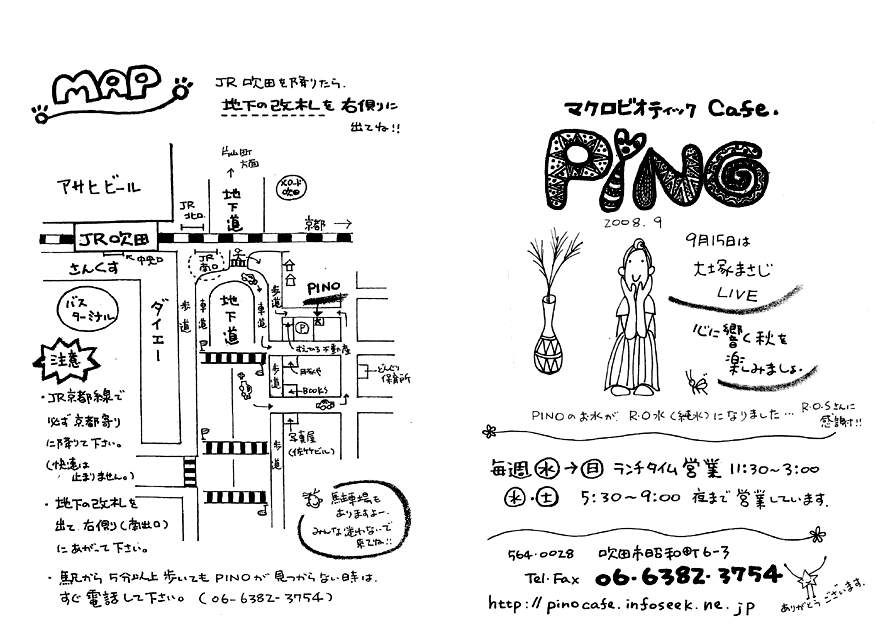 MAP
JR 吹田を降りたら、
地下の改札を右側に
出てね!!
片山町
方面
地下道
メロード
吹田
アサヒビール
JR
北口
京都
JR吹田
中央口
さんくす
JR
南口
バス
ターミナル
ダイエー
歩道
車道
地下道
車道
歩道
PINO
P
不動産
歩道
BOOKS
どんぐり
保育所
写真屋
(佐竹ビル)
歩道
注意
・JR京都線で
必ず京都寄り
に降りて下さい。
(快速は
止まりません。)
・地下の改札を
出て、右側(南出口)
にあがって下さい。
駐車場も
ありますよー。
みんな迷わないで
来てね!!
・駅から5分以上歩いてもPINOが見つからない時は、
すぐ電話して下さい。(06-6382-3754)
マクロビオティック Cafe.
PiNO
2008.9
9月15日は
大塚まさじ
LIVE
心に響く秋を
楽しみましょ。
PINOのお水が、R.O水(純水)になりました… R.O.Sさんに
感謝!!
毎週水→日 ランチタイム営業 11:30~3:00
水・土 5:30~9:00 夜まで営業しています。
564-0028 吹田市昭和町6-3
Tel・Fax 06-6382-3754
http://pinocafe.infoseek.ne.jp
ありがとうございます。